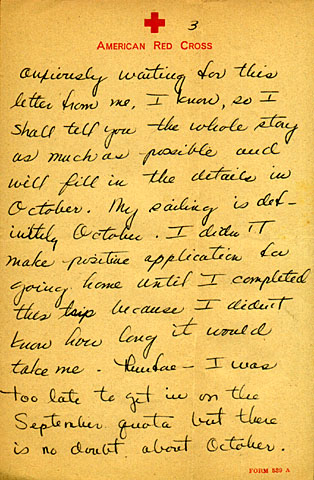 3
AMERICAN RED CROSS
anxiously waiting for this
letter from me, I know, so I
shall tell you the whole story
as much as possible and
will fill in the details in
October. My sailing is def-
initely October. I didn't
make positive application for
going home until I completed
this trip because I didn't
know how long it would
take me. Therefore - I was
too late to get in on the
September quota but there
is no doubt about October.
FORM 539 A